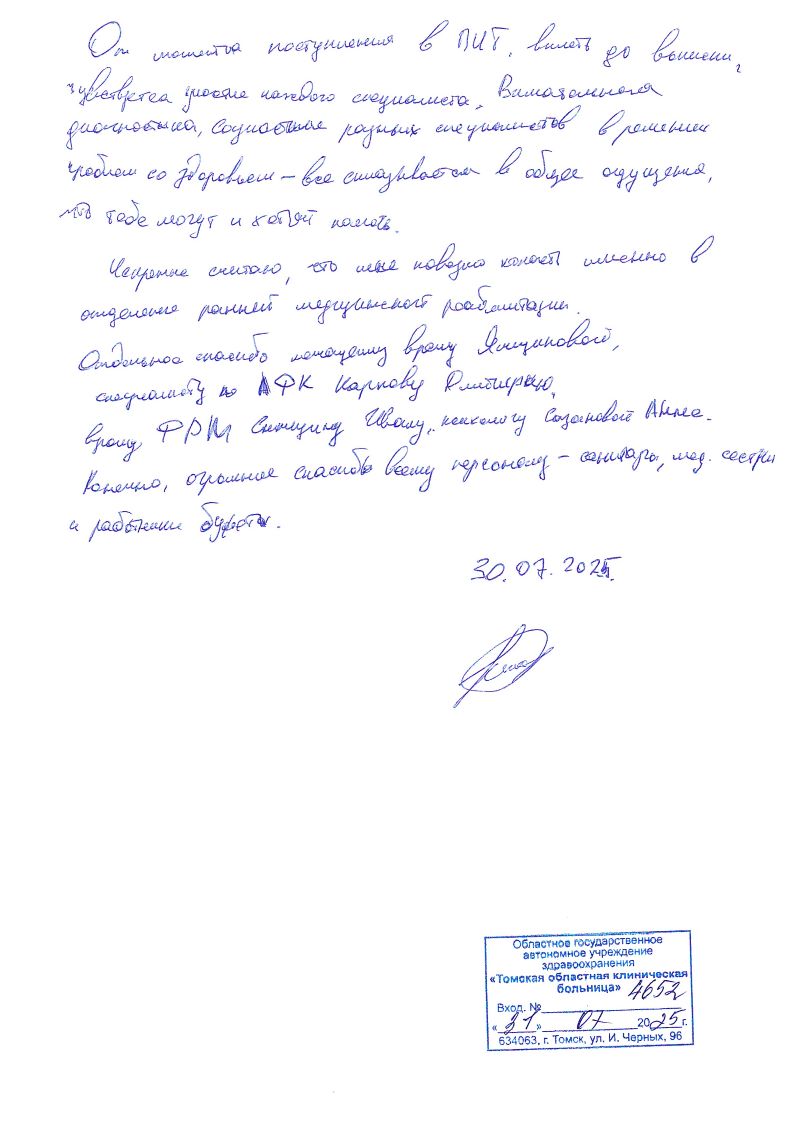 От момента поступления в ПИТ, вплоть до выписки,
чувствуется участие каждого специалиста. Внимательная
диагностика, соучастие разных специалистов в решении
проблем со здоровьем – все складывается в общее ощущение,
что тебе могут и хотят помочь.
Искренне считаю, что мне повезло попасть именно в
отделение ранней медицинской реабилитации.
Отдельное спасибо лечащему врачу
специалисту по АФК Карпову Дмитрию,
врачу ФРМ Ивану, психологу Сазановой Анне.
Конечно, огромное спасибо всему персоналу – санитары, мед. сестры
и работники буфета.
30.07.2025.
Областное государственное
автономное учреждение
здравоохранения
«Томская областная клиническая
больница»
Вход. № 4652
« 31 » 07 2025 г.
634063, г. Томск, ул. И. Черных, 96